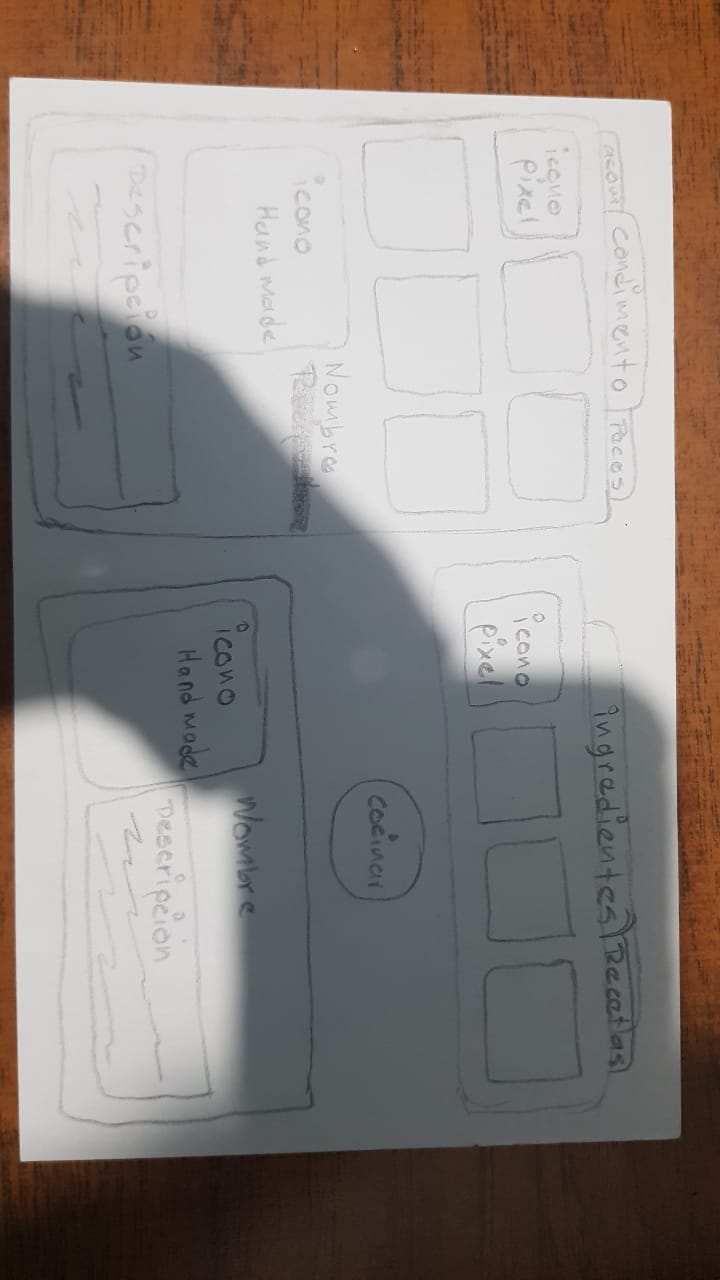 acom
Condimento
Pocos
icono
pixel
Nombre
icono
Handmade
Descripción
ingredientes
Recetas
icono
pixel
cocinar
icono
Handmade
Nombre
Descripción